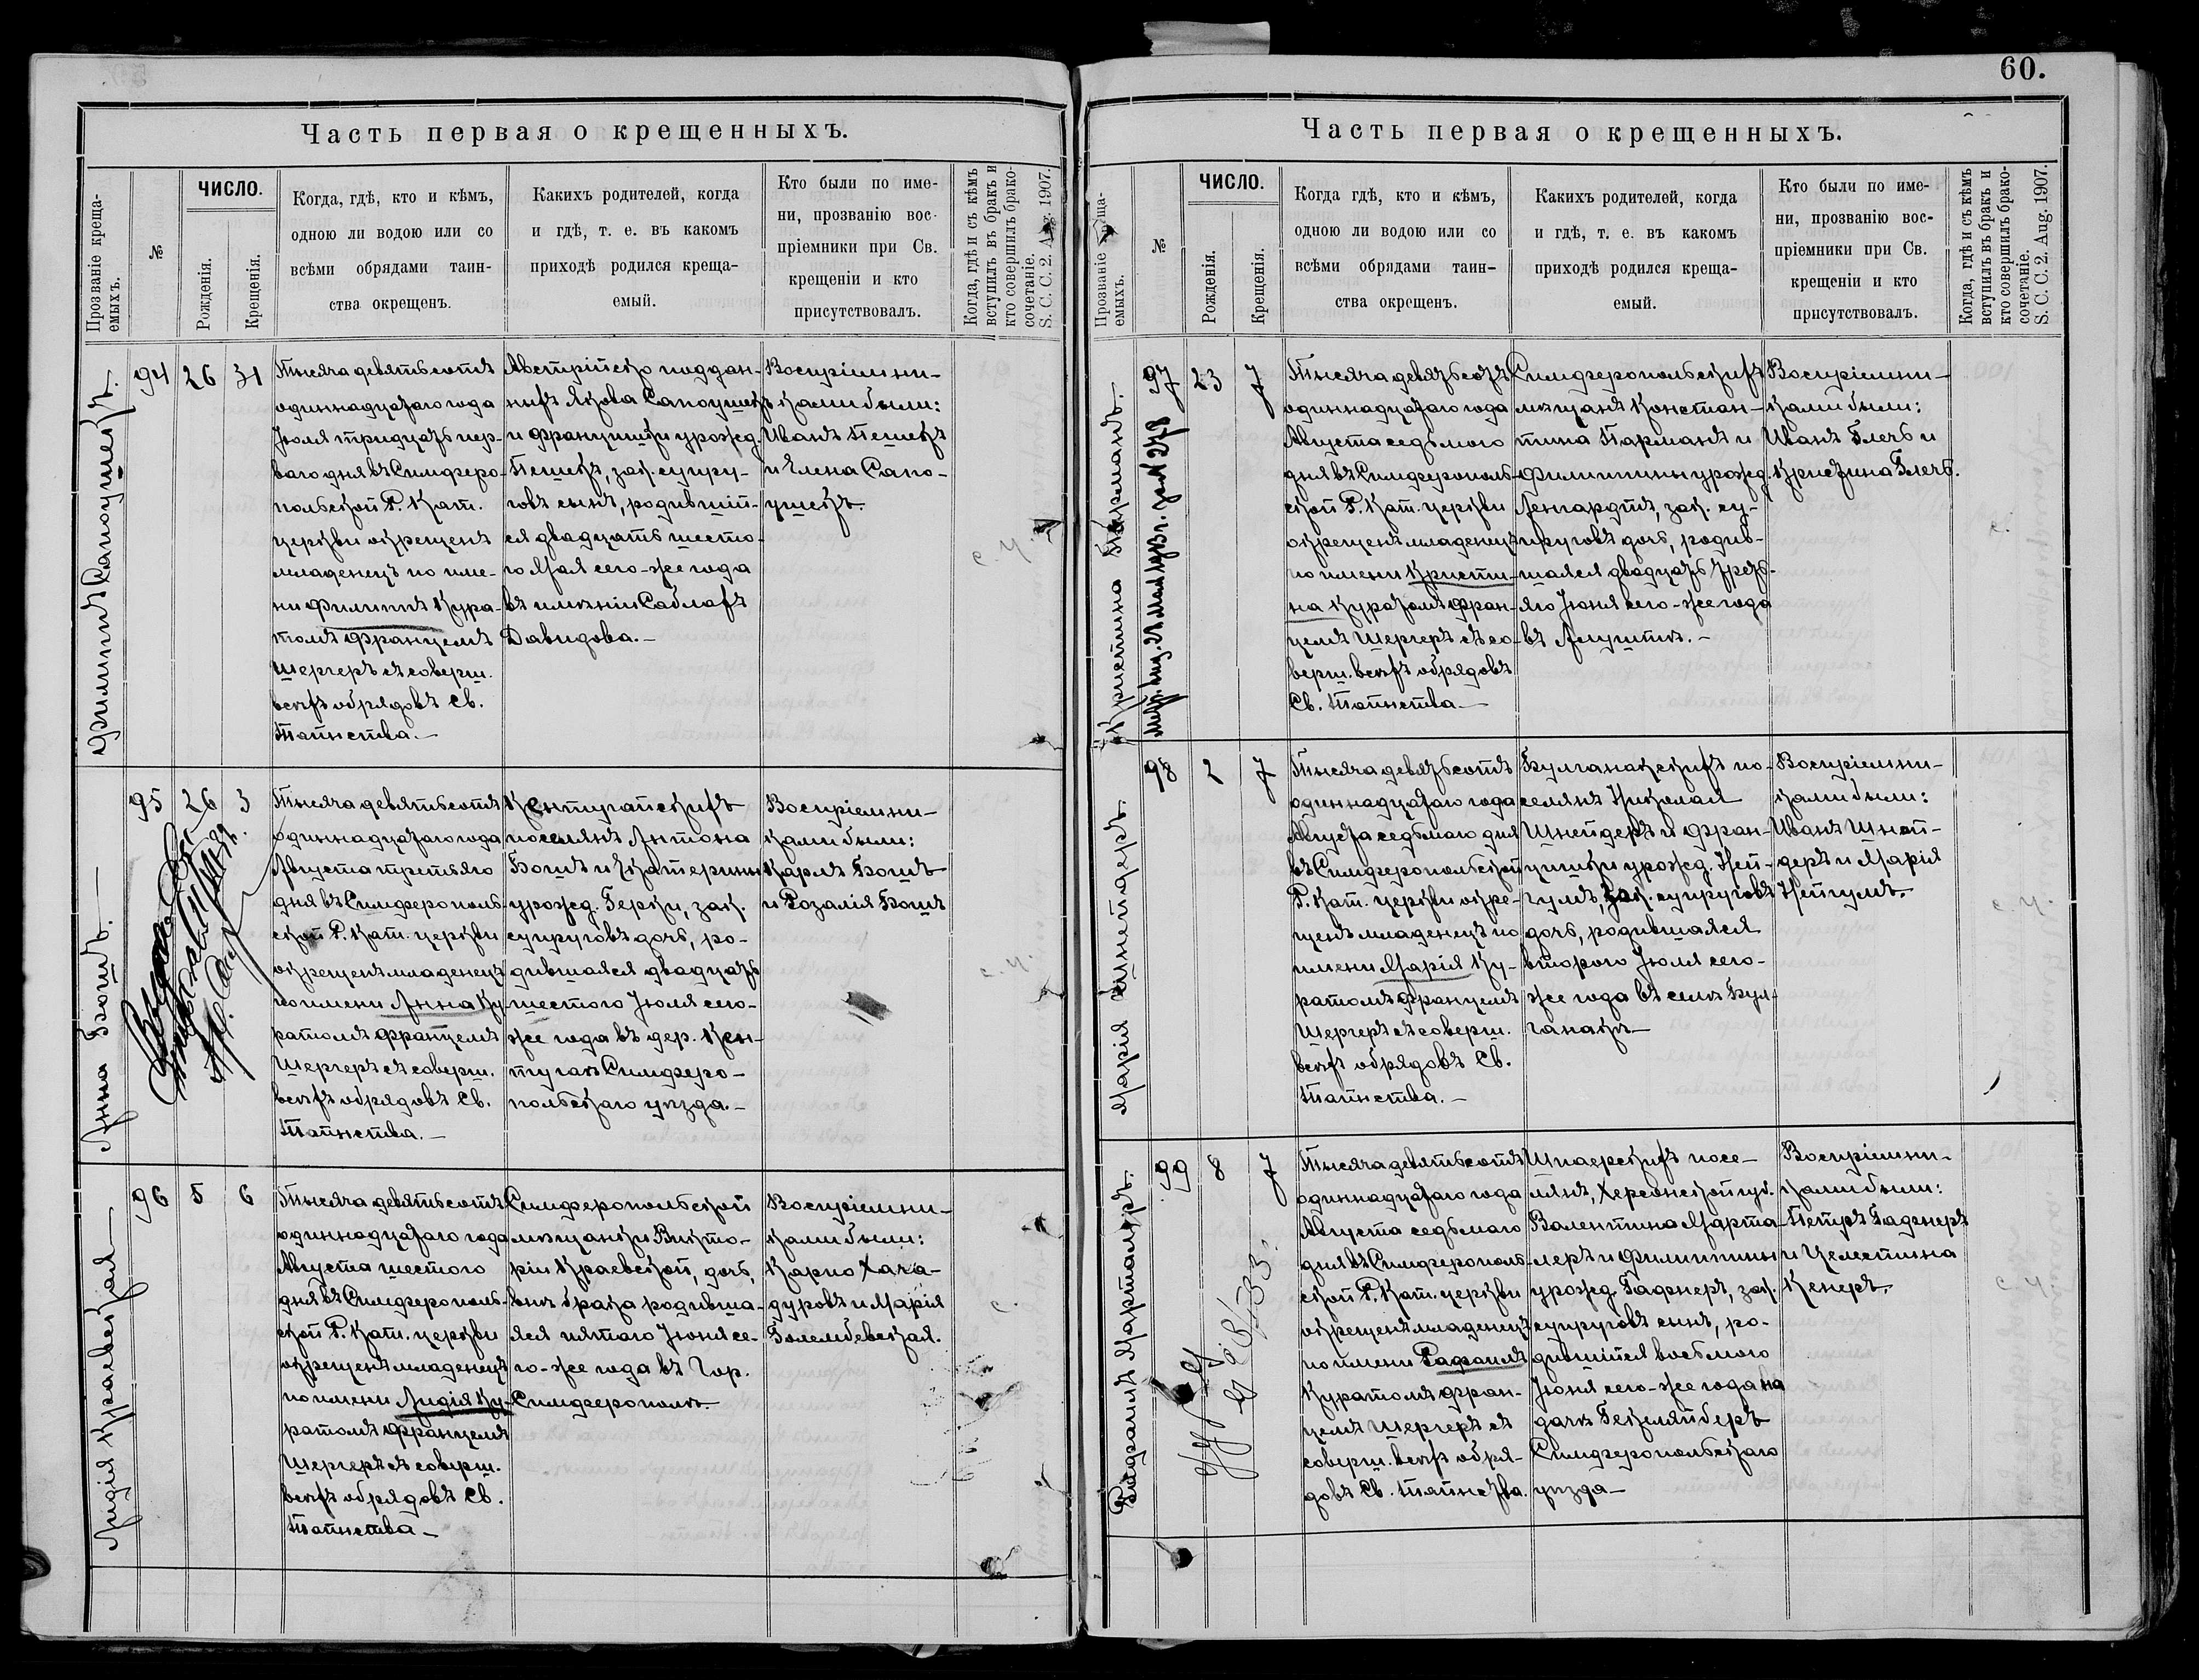 60.
Часть первая о крещенныхъ.
Прозваніе креща-
емыхъ.
№
ЧИСЛО.
Рожденія.
Крещенія.
Когда, гдѣ, кто и кѣмъ,
одною ли водою или со
всѣми обрядами таин-
ства окрещенъ.
Какихъ родителей, когда
и гдѣ, т. е. въ какомъ
приходѣ родился креща-
емый.
Кто были по име-
ни, прозванію вос-
пріемники при Св.
крещеніи и кто
присутствовалъ.
Когда, гдѣ и съ кѣмъ
вступилъ въ бракъ и
кто совершилъ брако-
сочетаніе.
S. C. C. 2. Aug. 1907.
Филиппъ Сапоушекъ.
94
26
31
Тысяча девятьсотъ
одиннадцатаго года
Іюля тридцать пер-
ваго дня въ Симферо-
польской Р. Кат.
церкви окрещенъ
младенецъ по име-
ни Филиппъ Кура-
томъ Францемъ
Шергеръ съ соверш.
всѣхъ обрядовъ Св.
Таинства.—
Австрійско поддан-
ныхъ Якова Сапоушекъ
и Франциши урожд.
Пешекъ, зак. супру-
говъ сынъ, родивший-
ся двадцать шесто-
го Мая сего-же года
въ имѣніи Саблахъ
Давидова.—
Воспріемни-
ками были:
Иванъ Пешекъ
и Елена Сапо-
ушекъ.
с. ч.
Анна Бошъ.—
95
26
3
Тысяча девятьсотъ
одиннадцатаго года
Августа третьяго
дня въ Симферополь-
ской Р. Кат. церкви
окрещенъ младенецъ
по имени Анна Ку-
ратомъ Францемъ
Шергеръ съ соверш.
всѣхъ обрядовъ Св.
Таинства.—
Кентугайскихъ
поселянъ Антона
Бошъ и Екатерины
урожд. Герки, зак.
супруговъ дочь, ро-
дившаяся двадцать
шестого Іюля сего-
же года въ дер. Кен-
тугаѣ Симферо-
польскаго уѣзда.—
Воспріемни-
ками были:
Карлъ Бошъ
и Розалія Бошъ
с. ч.
Лидія Краевская—
96
5
6
Тысяча девятьсотъ
одиннадцатаго года
Августа шестого
дня въ Симферополь-
ской Р. Кат. церкви
окрещенъ младенецъ
по имени Лидія Ку-
ратомъ Францемъ
Шергеръ съ соверш.
всѣхъ обрядовъ Св.
Таинства—
Симферопольской
мѣщанки Викто-
ріи Краевской, дочь,
внѣ брака родивша-
яся пятаго Іюня се-
го-же года въ Гор.
Симферополѣ.
Воспріемни-
ками были:
Карпо Хача-
дуровъ и Марія
Голембевская.
с.
Часть первая о крещенныхъ.
емыхъ.
№
ЧИСЛО.
Рожденія.
Крещенія.
Когда гдѣ, кто и кѣмъ,
одною ли водою или со
всѣми обрядами таин-
ства окрещенъ.
Какихъ родителей, когда
и гдѣ, т. е. въ какомъ
приходѣ родился креща-
емый.
Кто были по име-
ни, прозванію вос-
пріемники при Св.
крещеніи и кто
присутствовалъ.
Когда, гдѣ и съ кѣмъ
вступилъ въ бракъ и
кто совершилъ брако-
сочетаніе.
S. C. C. 2. Aug. 1907.
Кристина Парманъ.
97
23
7
Тысяча девятьсотъ
одиннадцатаго года
Августа седьмого
дня въ Симферополь-
ской Р. Кат. церкви
окрещенъ младенецъ
по имени Кристи-
на Куратомъ Фран-
цемъ Шергеръ съ со-
верш. всѣхъ обрядовъ
Св. Таинства.—
Симферопольскихъ
мѣщанъ Констан-
тина Парманъ и
Филиппины урожд.
Ленгардтъ, зак. су-
пруговъ дочь, родив-
шаяся двадцать треть-
яго Іюня сего-же года
въ Алуштѣ.—
Воспріемни-
ками были:
Иванъ Блечь и
Кристина Блечь.
с.
Марія Шнейдеръ.
98
2
7
Тысяча девятьсотъ
одиннадцатаго года
Августа седьмаго дня
въ Симферопольской
Р. Кат. церкви окре-
щенъ младенецъ по
имени Марія Ку-
ратомъ Францемъ
Шергеръ съ соверш.
всѣхъ обрядовъ Св.
Таинства.—
Булганакскихъ по-
селянъ Николая
Шнейдеръ и Фран-
цишки урожд. Ней-
гумъ, зак. супруговъ
дочь, родившаяся
второго Іюля сего-
же года въ селѣ Бул-
ганакъ—
Воспріемни-
ками были:
Иванъ Шней-
деръ и Марія
Нейгумъ.
с. ч.
Рафаилъ Марталеръ.
99
8
7
Тысяча девятьсотъ
одиннадцатаго года
Августа седьмаго
дня въ Симферополь-
ской Р. Кат. церкви
окрещенъ младенецъ
по имени Рафаилъ
Куратомъ Фран-
цемъ Шергеръ съ
соверш. всѣхъ обря-
довъ Св. Таинства.
Шпаерскихъ посе-
лянъ, Херсонской губ.
Валентина Марта-
леръ и Филиппины
урожд. Гафнеръ, зак.
супруговъ сынъ, ро-
дившійся восьмого
Іюня сего-же года на
дачѣ Бекелянберъ
Симферопольскаго
уѣзда—
Воспріемни-
ками были:
Петръ Гафнеръ
и Целестина
Кенеръ.
с. ч.